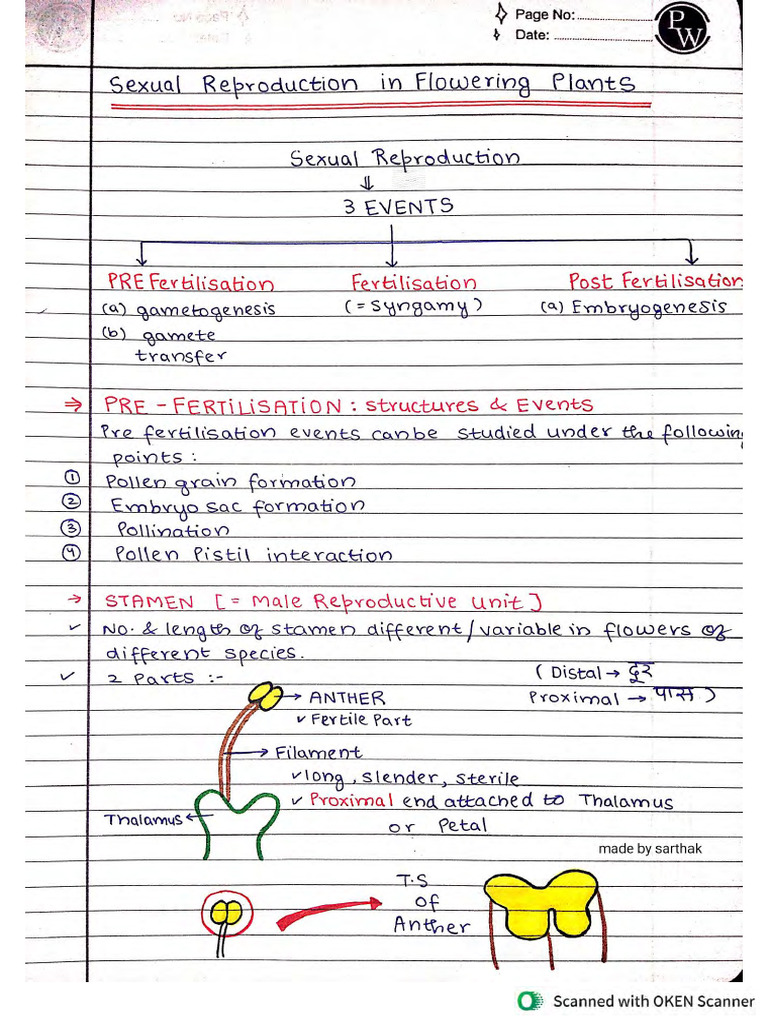 Page No:
Date:
PW
Sexual Reproduction in Flowering Plants
Sexual Reproduction
⇓
3 EVENTS
PRE Fertilisation Fertilisation Post Fertilisation
(a) gametogenesis (= Syngamy) (a) Embryogenesis
(b) gamete
transfer
→ PRE - FERTILISATION : structures & Events
Pre fertilisation events canbe studied under the following
points :
① Pollen grain formation
② Embryo sac formation
③ Pollination
④ Pollen Pistil interaction
→ STAMEN [= Male Reproductive Unit]
✓ No. & length of stamen different/variable in flowers of
different species.
✓ 2 Parts :- (Distal → दूर
Proximal → पास)
→ ANTHER
✓ Fertile Part
→ Filament
✓ long, slender, sterile
✓ Proximal end attached to Thalamus
or Petal
Thalamus
made by sarthak
T.S
of
Anther
Scanned with OKEN Scanner